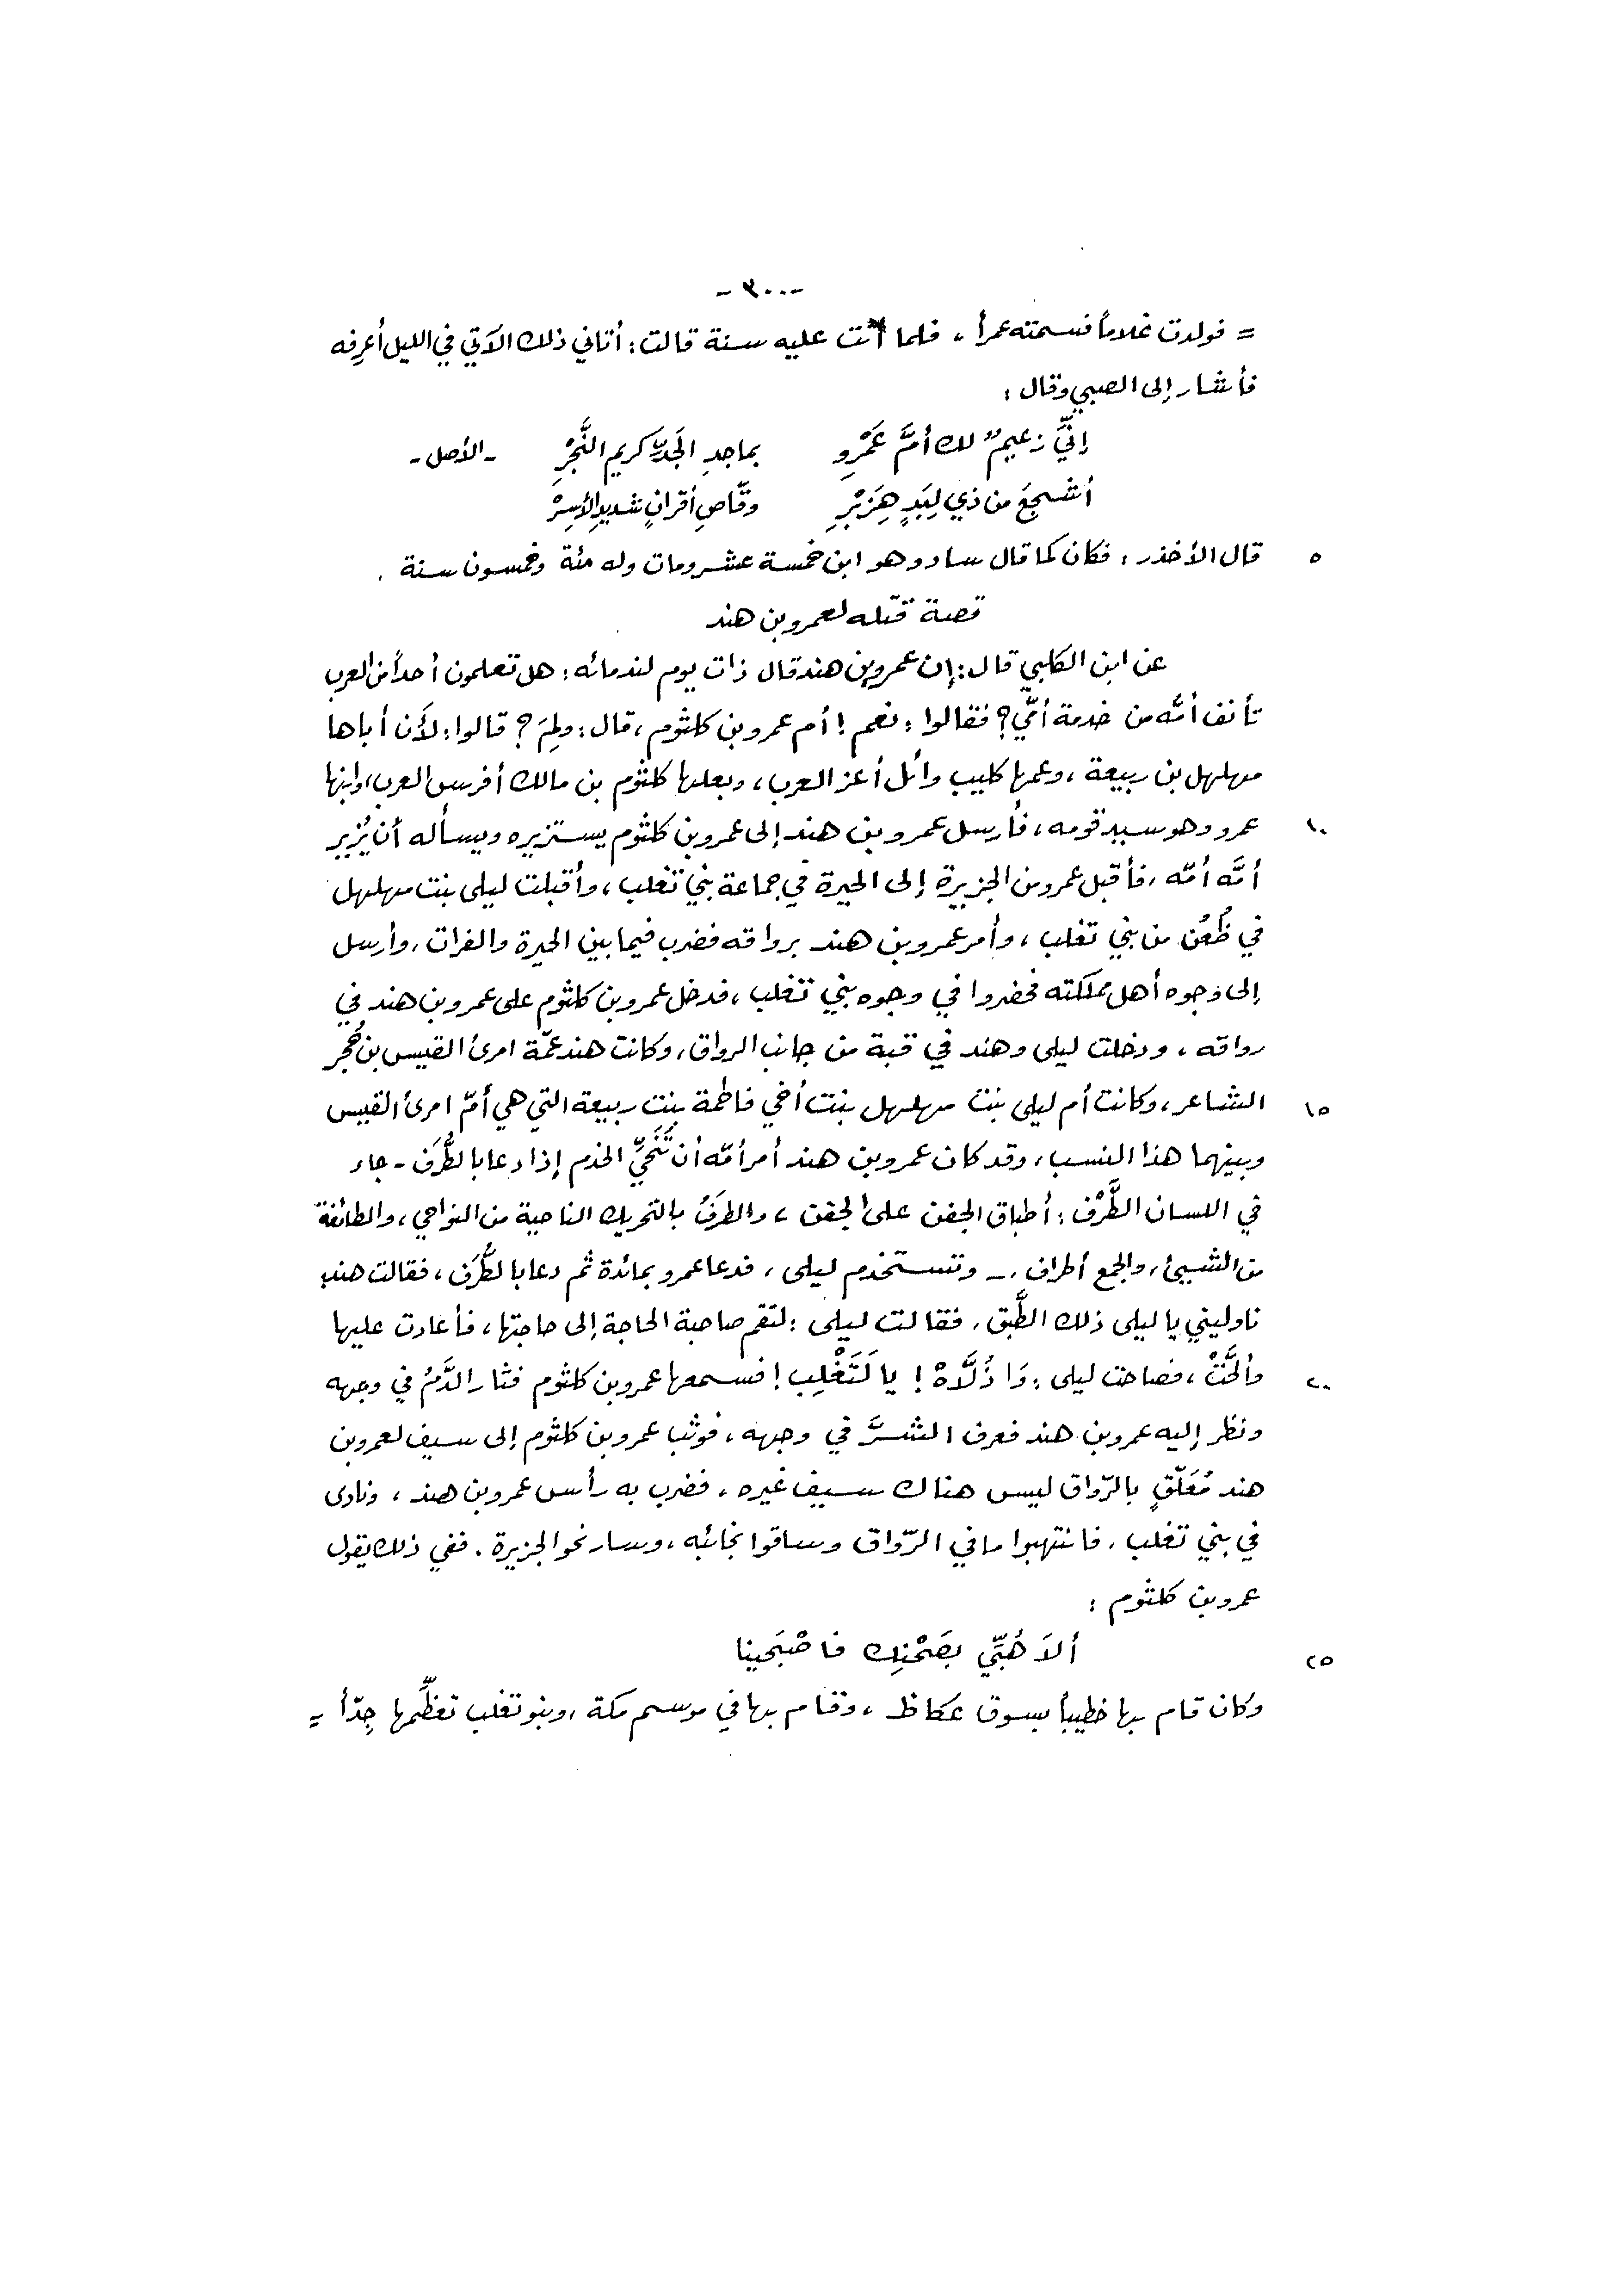 -٣٠٠-
= فولدت غلاماً فسمته عمراً ، فلما أتت عليه سنة قالت : أتاني ذلك الآتي في الليل أعرفه
فأشار إلى الصبي وقال :
إنّي زعيمٌ لك أمَّ عَمْرِو بماجدِ الجَدِّ كريمِ النَّجْرِ -الأصل-
أشجعَ من ذي لِبَدٍ هِزَبْرِ وقّاصِ أقرانٍ شديدِ الأسرْ
٥ قال الأخذر : فكان كما قال ساد وهو ابن خمسة عشر ومات وله مئة وخمسون سنة .
قصة قتله لعمرو بن هند
عن ابن الكلبي قال : إن عمرو بن هند قال ذات يوم لندمائه : هل تعلمون أحداً من العرب
تأنف أمّه من خدمة أمّي ؟ فقالوا : نعم ! أم عمرو بن كلثوم ، قال : ولِمَ ؟ قالوا : لأن أباها
مهلهل بن ربيعة ، وعمها كليب وائل أعز العرب ، وبعلها كلثوم بن مالك أفرس العرب ، وابنها
١٠ عمرو وهو سيد قومه ، فأرسل عمرو بن هند إلى عمرو بن كلثوم يستزيره ويسأله أن يُزير
أمَّه أمّه ، فأقبل عمرو من الجزيرة إلى الحيرة في جماعة بني تغلب ، وأقبلت ليلى بنت مهلهل
في ظُعُن من بني تغلب ، وأمر عمرو بن هند برواقه فضرب فيما بين الحيرة والفرات ، وأرسل
إلى وجوه أهل مملكته فحضروا في وجوه بني تغلب ، فدخل عمرو بن كلثوم على عمرو بن هند في
رواقه ، ودخلت ليلى وهند في قبة من جانب الرواق ، وكانت هند عمّة امرئ القيس بن حُجر
١٥ الشاعر ، وكانت أم ليلى بنت مهلهل بنت أخي فاطمة بنت ربيعة التي هي أمّ امرئ القيس
وبينهما هذا النسب ، وقد كان عمرو بن هند أمر أمّه أن تُنَحّي الخدم إذا دعا بالطُّرَف - جاء
في اللسان الطَّرْف : أطباق الجفن على الجفن ، والطرَفُ بالتحريك الناحية من النواحي ، والطائفة
من الشيئ ، والجمع أطراف ، - وتستخدم ليلى ، فدعا عمرو بمائدة ثم دعا بالطُّرَف ، فقالت هند
ناوليني يا ليلى ذلك الطَّبق ، فقالت ليلى : لتقم صاحبة الحاجة إلى حاجتها ، فأعادت عليها
٢٠ وألحَّتْ ، فصاحت ليلى : وَا ذُلَّاهْ ! يا لَتَغْلِب ! فسمعها عمرو بن كلثوم فثار الدَّمُ في وجهه
ونظر إليه عمرو بن هند فعرف الشرَّ في وجهه ، فوثب عمرو بن كلثوم إلى سيف لعمرو بن
هند مُعَلّقٍ بالرّواق ليس هناك سيف غيره ، فضرب به رأس عمرو بن هند ، ونادى
في بني تغلب ، فانتهبوا ما في الرّواق وساقوا نجائبه ، وسار نحو الجزيرة . ففي ذلك يقول
عمرو بن كلثوم :
٢٥ ألاَ هُبّي بصَحْنِك فاصْبَحينا
وكان قام بها خطيباً بسوق عكاظ ، وقام بها في موسم مكة ، وبنو تغلب تعظِّمها جِدّاً =